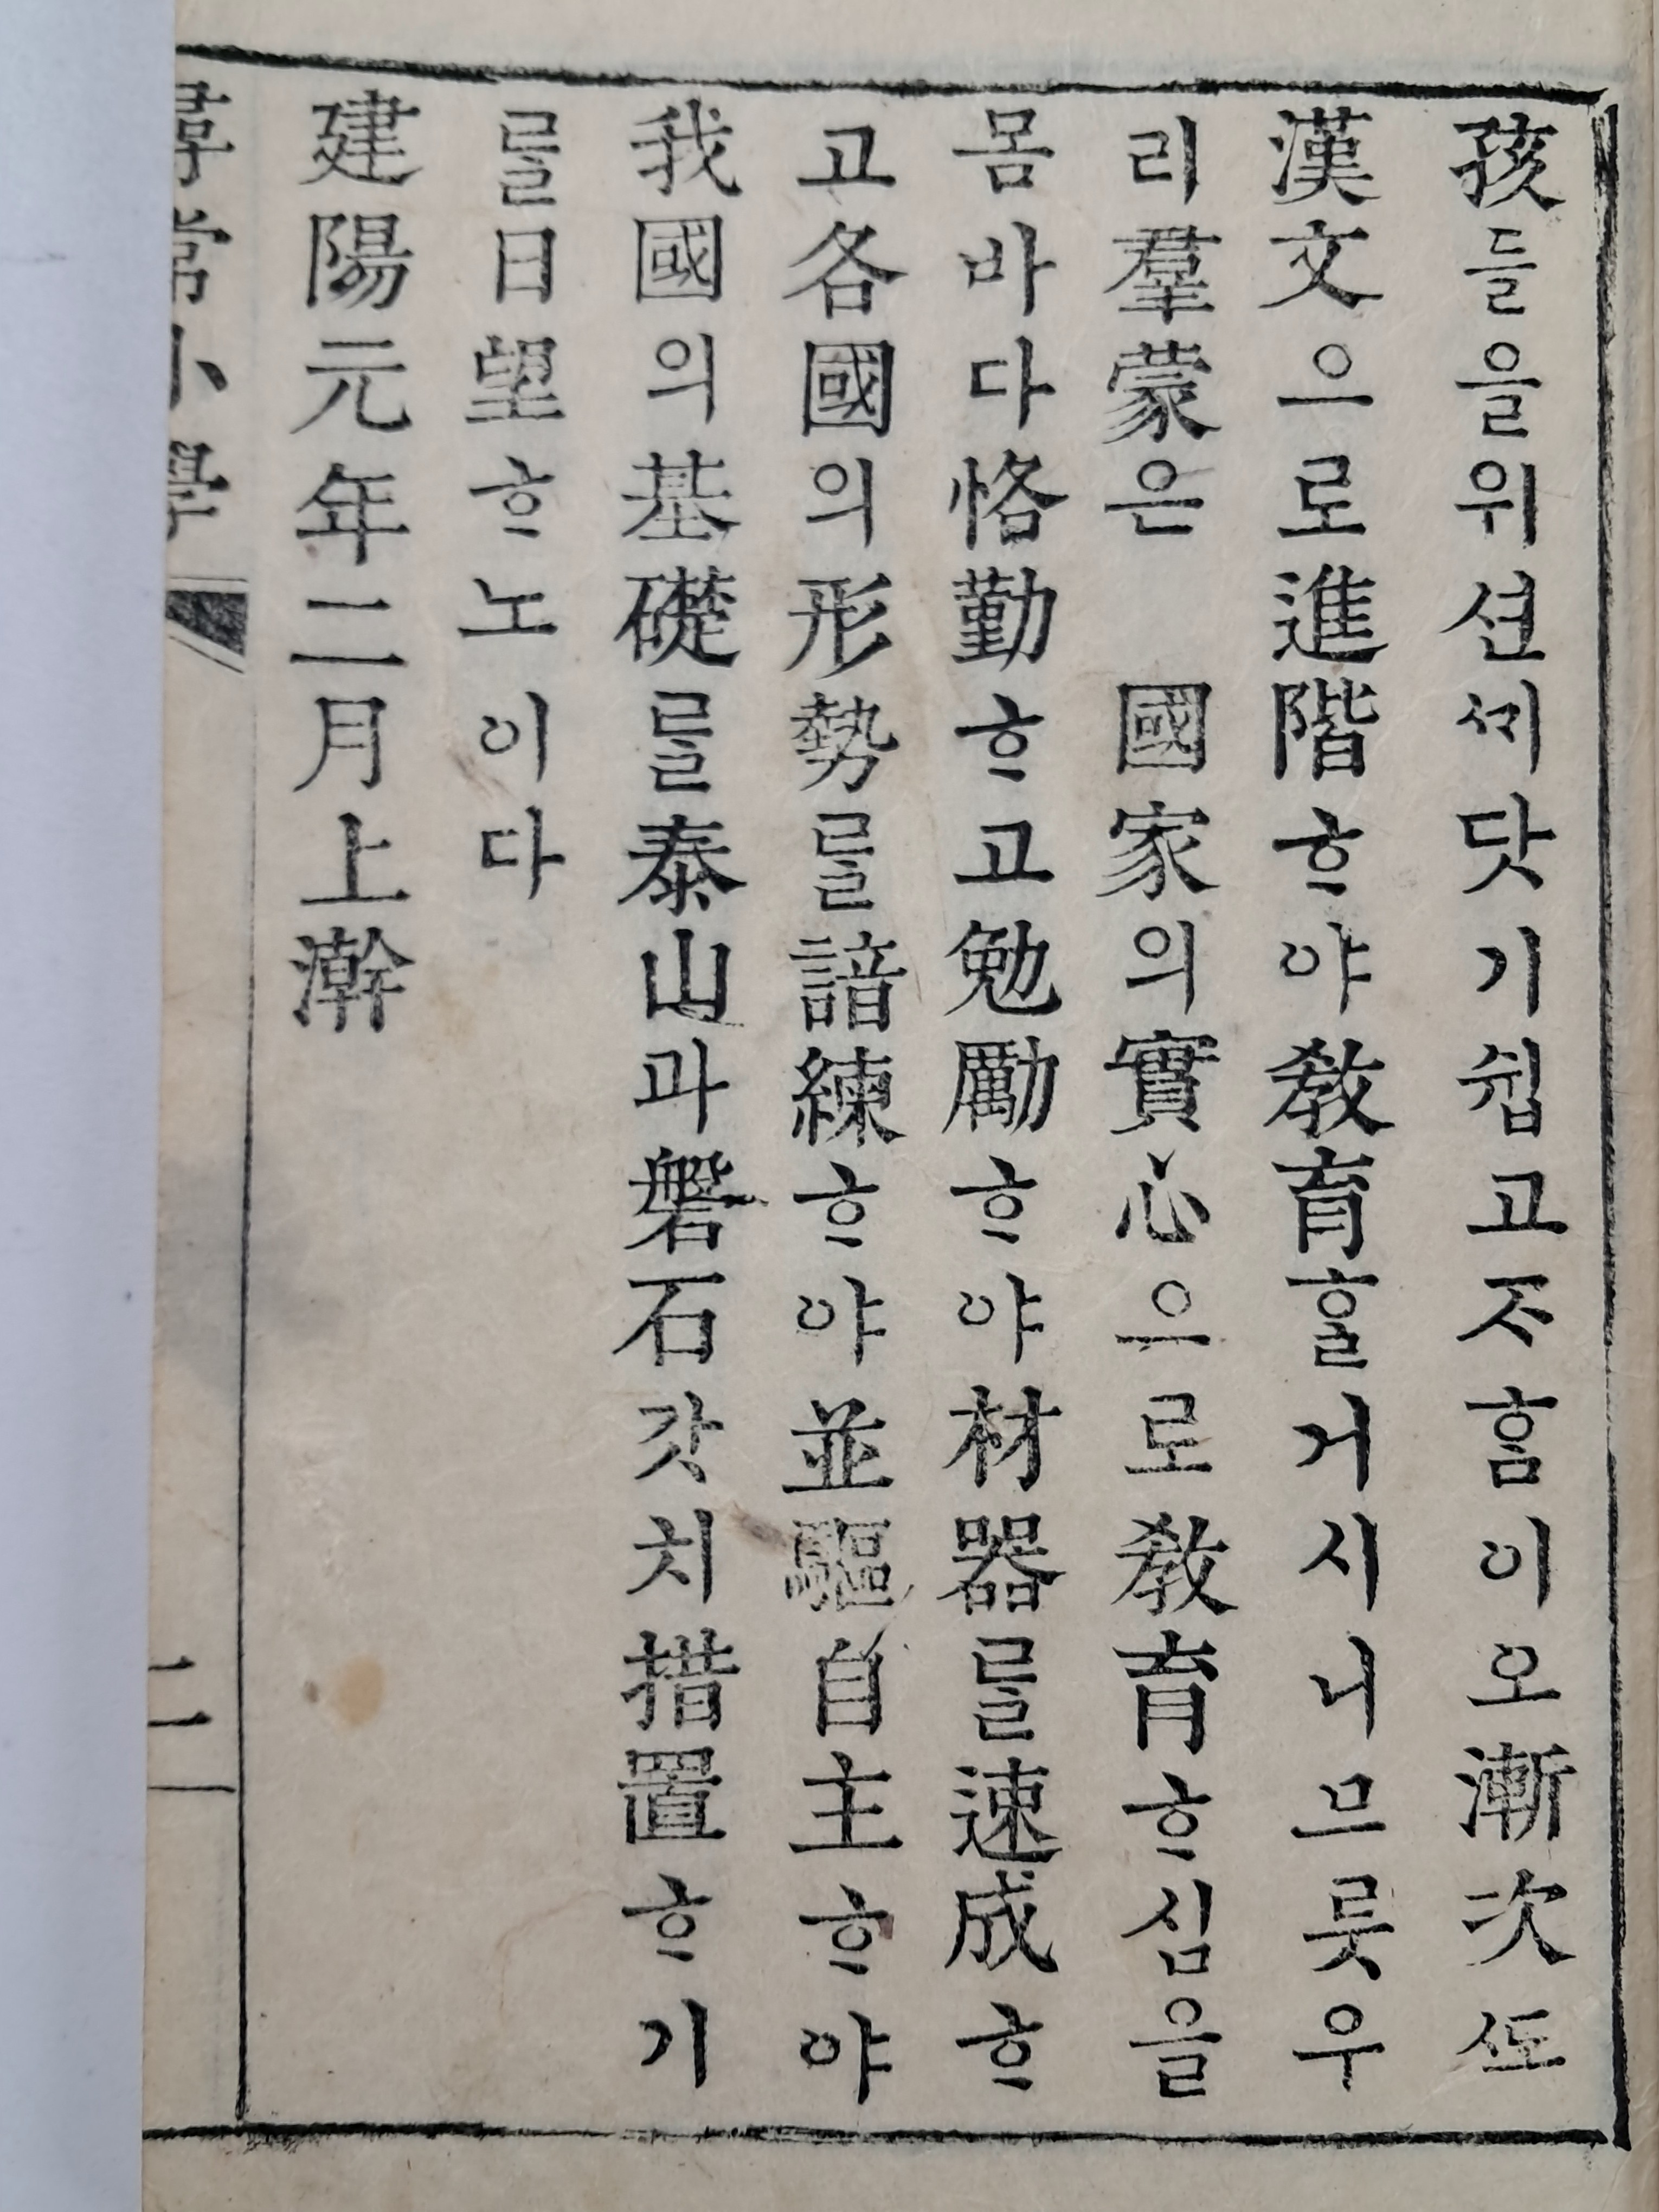 孩들을위션ᄭᆡ닷기쉽고ᄌᆞᄒᆞᆷ이오漸次ᄯᅩ
漢文으로進階ᄒᆞ야教育ᄒᆞᆯ거시니므릇우
리羣蒙은 國家의實心으로教育ᄒᆞ심을
몸바다恪勤ᄒᆞ고勉勵ᄒᆞ야材器를速成ᄒᆞ
고各國의形勢를諳練ᄒᆞ야並驅自主ᄒᆞ야
我國의基礎를泰山과磐石갓치措置ᄒᆞ기
를日望ᄒᆞ노이다
建陽元年二月上澣
尋常小學 二